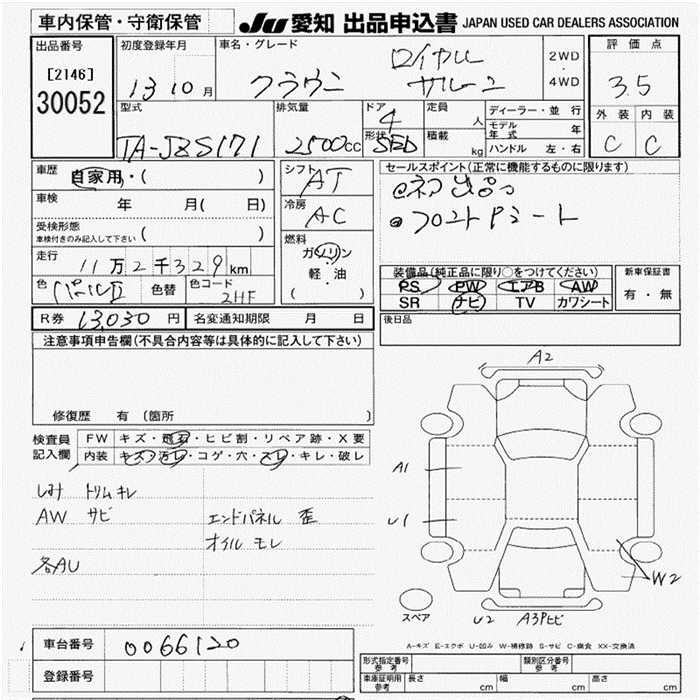 車内保管・守衛保管
JU 愛知 出品申込書 JAPAN USED CAR DEALERS ASSOCIATION
出品番号
[2146]
30052
初度登録年月
13 10 月
車名・グレード
クラウン
ロイヤル
サルーン
2WD
・
4WD
評価点
3.5
外装 内装
C C
型式
TA-JZS171
排気量
2500cc
ドア
4
形状
SED
定員
人
積載
kg
ディーラー・並行
モデル年式 年
ハンドル 左・右
車歴
自家用・( )
車検
年 月( 日)
受検形態
車検付きのみ記入して下さい ( )
走行
11万2千329km
色
パールII
色替
色コード
2HF
シフト
AT
冷房
AC
燃料
ガソリン
・
軽・油
( )
セールスポイント(正常に機能するものに限ります)
装備品(純正品に限り○をつけてください)
PS PW エアB AW
SR ナビ TV カワシート
新車保証書
有・無
後日品
R券 13,030円 名変通知期限 月 日
注意事項申告欄(不具合内容等は具体的に記入して下さい)
修復歴 有 (箇所 )
検査員
記入欄
FW キズ・飛石・ヒビ割・リペア跡・X要
内装 キズ・汚レ・コゲ・穴・スレ・キレ・破レ
シミ トリムキレ
AW サビ
エンドパネル 歪
オイル モレ
各AU
A2
A1
U1
W2
スペア
U2 A3Pヒビ
A-キズ E-エクボ U-凹み W-補修跡 S-サビ C-腐食 XX-交換済
車台番号 0066120
登録番号
形式指定番号
参考
類別区分番号
参考
車庫証明用
参考
長さ cm 幅 cm 高さ cm